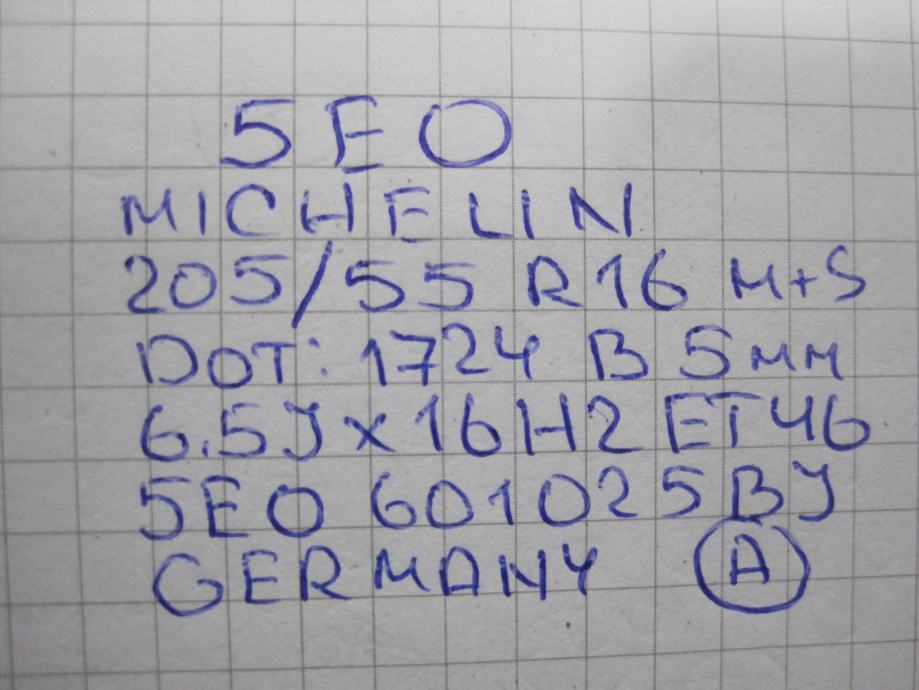 5EO
MICHELIN
205/55 R16 M+S
DOT: 1724 B 5mm
6.5J x 16H2 ET46
5EO 601025BJ
GERMANY A